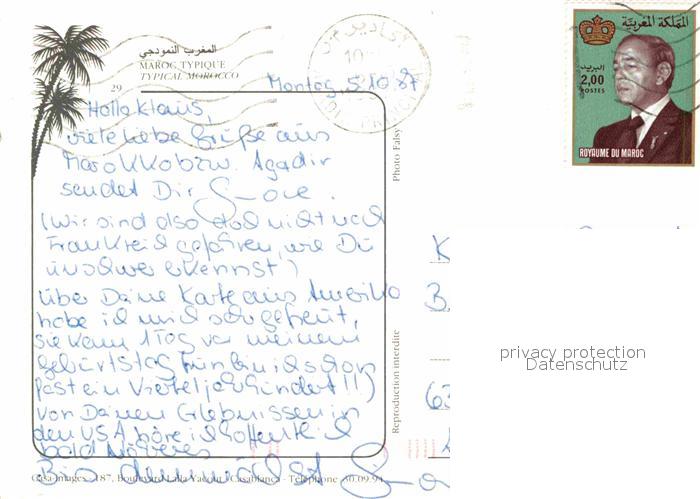 المغرب النمودجي
MAROC TYPIQUE
TYPICAL MOROCCO
29
Montag, 5.10.87
Hallo Klaus,
viele liebe Grüße aus
Marokko bzw. Agadir
sendet Dir
(Wir sind also doch nicht nach
Frankreich gefahren, wie Du
unschwer erkennst!)
Über Deine Karte aus Amerika
habe ich mich sehr gefreut,
sie kam 1 Tag vor meinem
Geburtstag (nun bin ich schon
fast ein Vierteljahrhundert!!)
Von Deinen Erlebnissen in
den USA höre ich hoffentlich
bald Näheres
Bis demnächst
Casa-Images - 187, Boulevard Lalla Yacout - Casablanca - Téléphone 30.09.94
Photo Falsy
Reproduction interdite
المملكة المغربية
البريد
2,00
POSTES
ROYAUME DU MAROC
privacy protection
Datenschutz